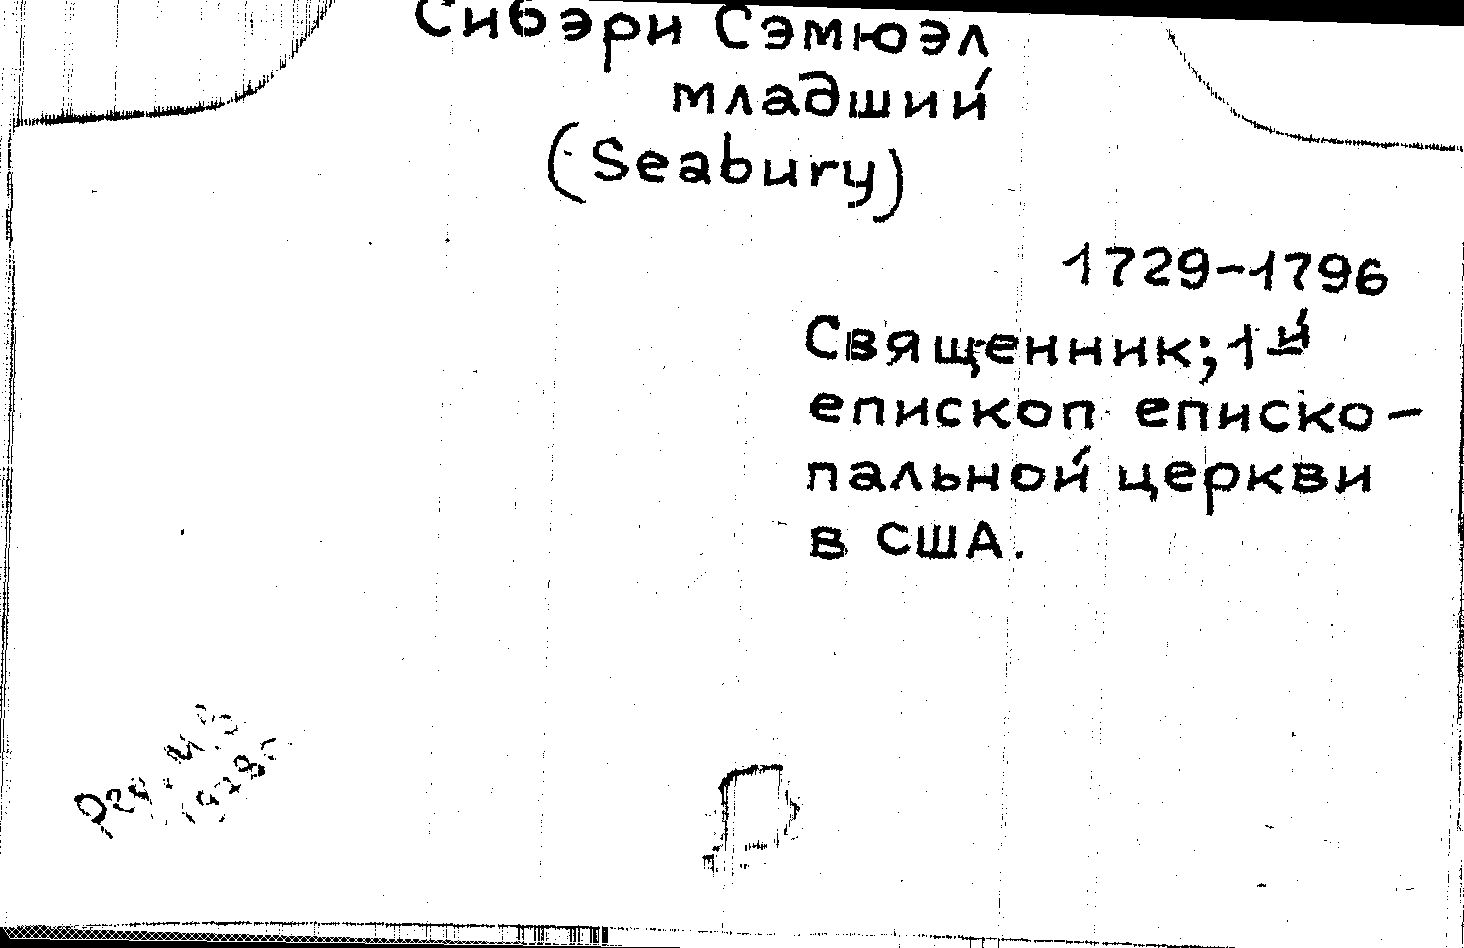 Сибэри Сэмюэл
младший
(Seabury)
1729-1796
Священник; 1й
епископ еписко-
пальной церкви
в США.
Ред.
1978г.